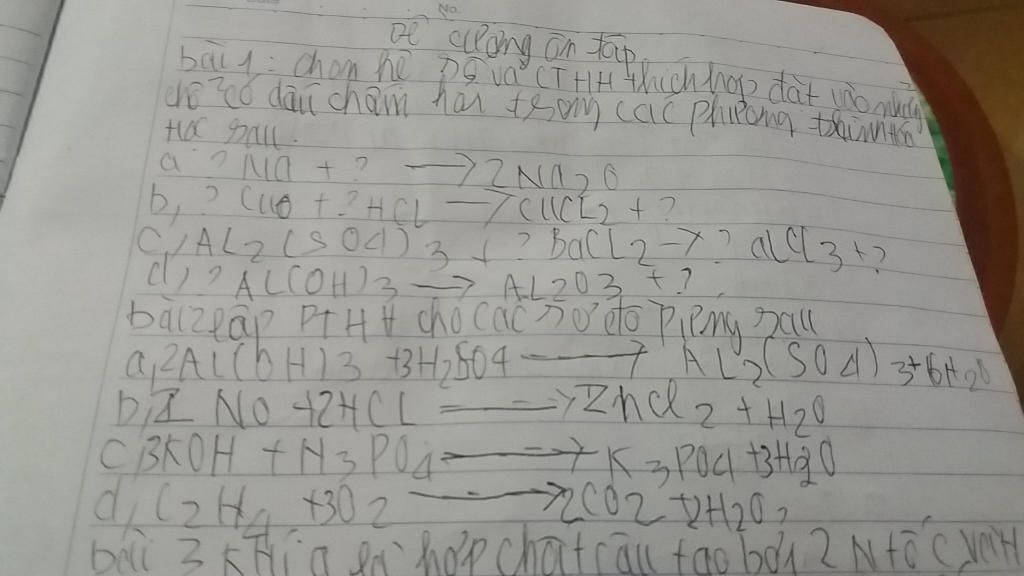 No.
Đề cương ôn tập
bài 1: chọn hệ số và CTHH thích hợp đặt vào những
chỗ có dấu chấm hỏi trong các phương trình hóa
học sau.
a ? Na + ? → 2Na2O
b, ? CuO + ? HCL → CUCL2 + ?
C, AL2(SO4)3 + ? BaCL2 → ? alCl3 + ?
d, ? AL(OH)3 → AL2O3 + ?
bài 2 lập PTHH cho các sơ đồ sau
a, 2Al(OH)3 + 3H2SO4 → AL2(SO4)3 + 6H2O
b, Z NO + 2HCL → ZnCl2 + H2O
C, 3KOH + H3PO4 → K3PO4 + 3H2O
d, C2H4 + 3O2 → 2CO2 + 2H2O
bài 3 Khí a là hợp chất cấu tạo bởi 2 NTố C và H